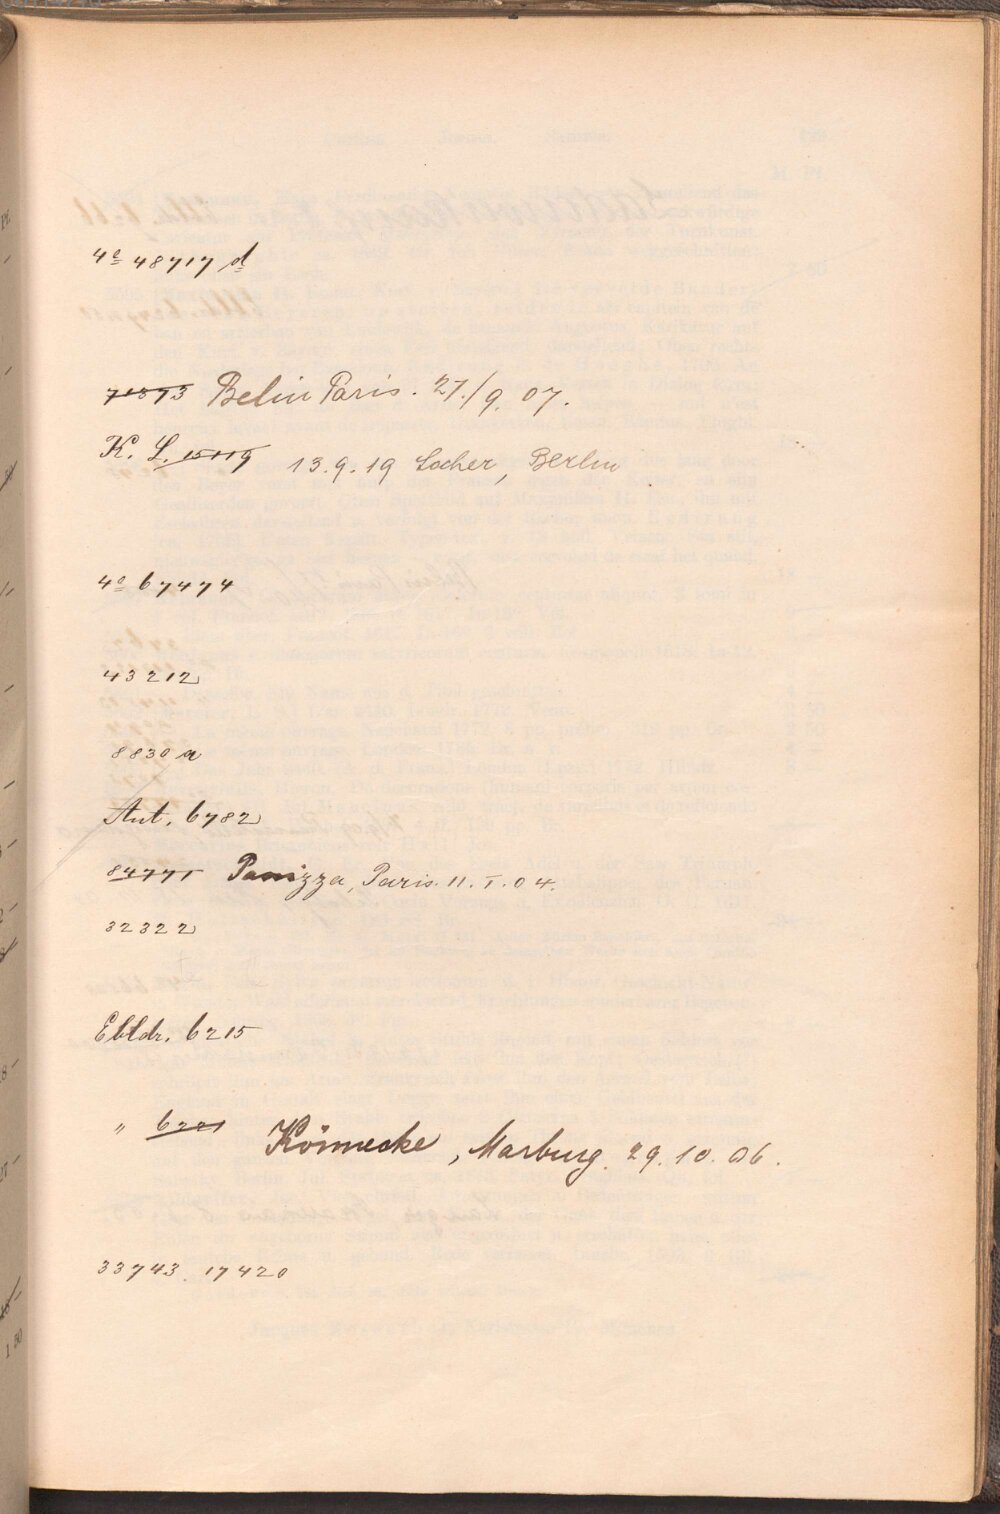 4º 48717 d
71373 Belin Paris. 27./9. 07.
K. L. 15119 13.9.19 Locher, Berlin
4º 67474
43212
8830 a
Aut. 6782
84771 Panizza, Paris. 11. I. 04.
32322
Ebldr. 6215
" Könnecke, Marburg. 29. 10. 06.
33743. 17420